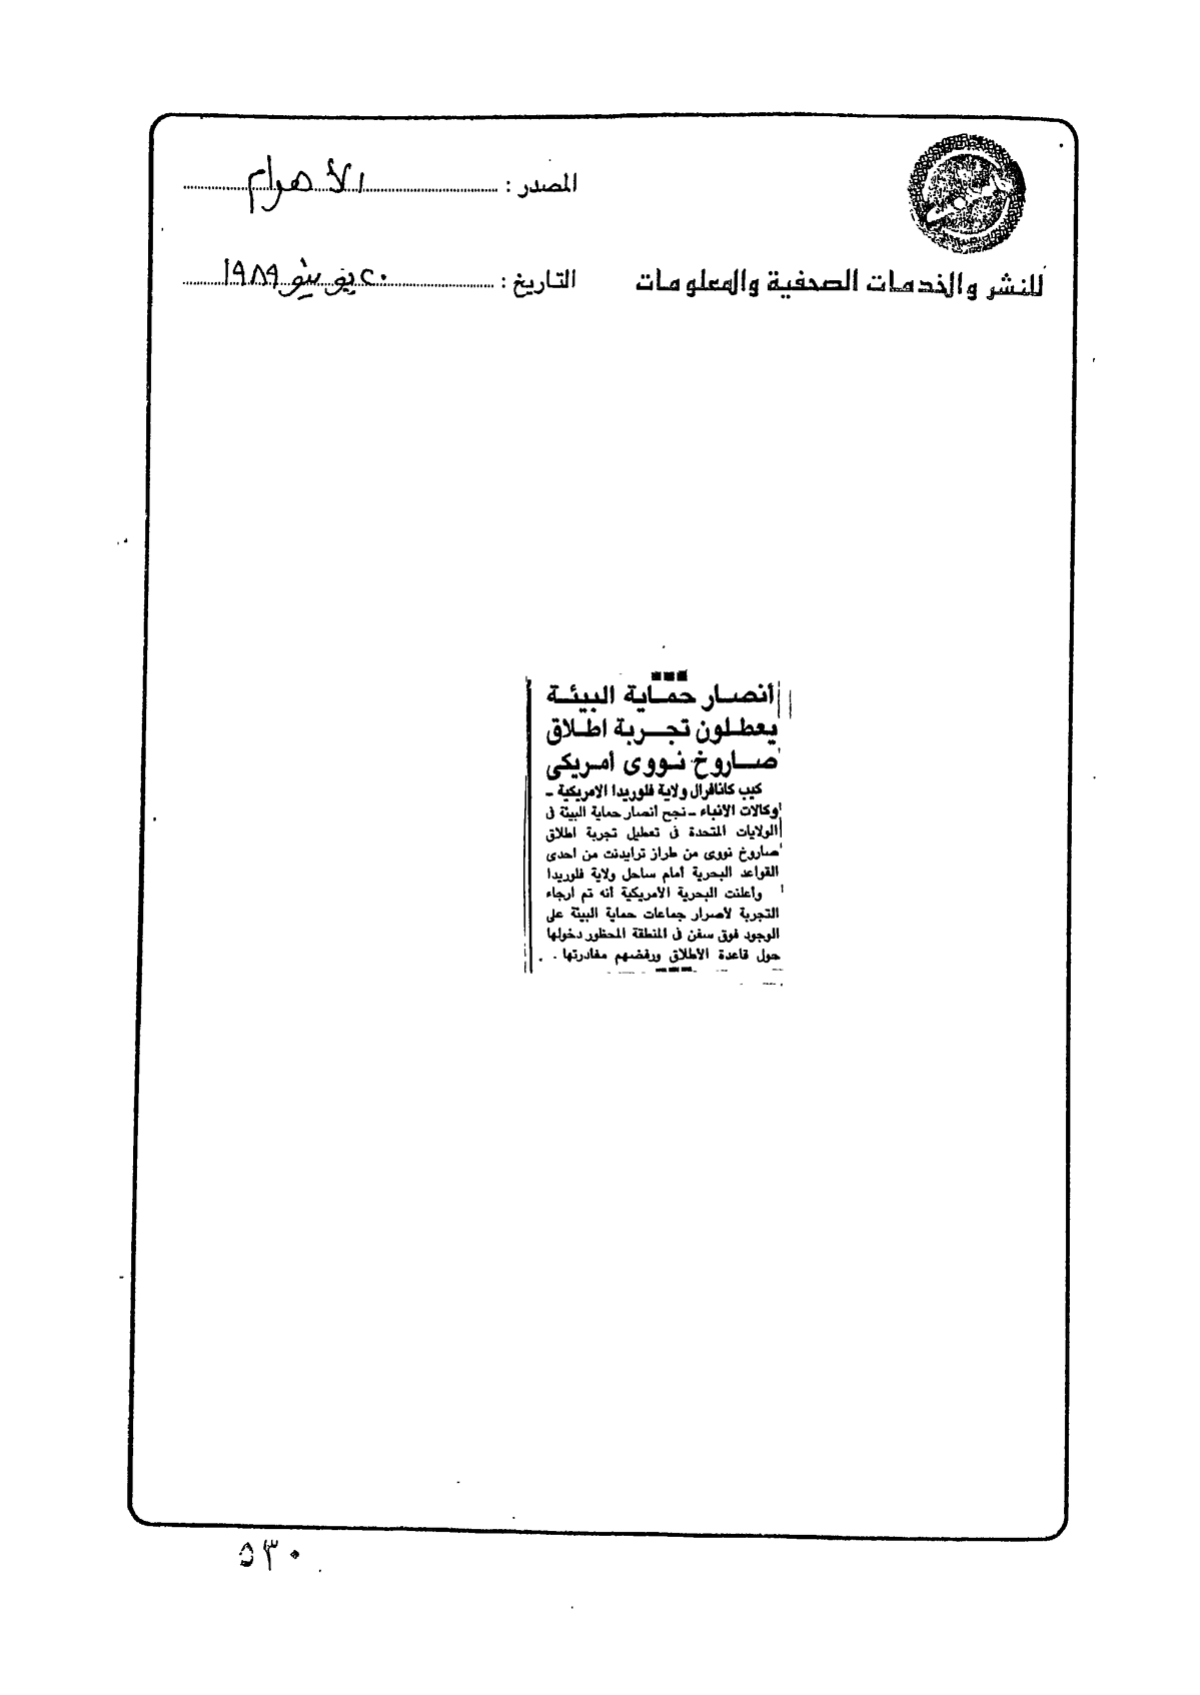 المصدر : الأهرام
للنشر والخدمات الصحفية والمعلومات
التاريخ : ٢٠ يونيو ١٩٨٩
أنصار حماية البيئة
يعطلون تجربة اطلاق
صاروخ نووى أمريكى
كيب كانافرال ولاية فلوريدا الامريكية ـ
وكالات الأنباء ـ نجح انصار حماية البيئة فى
الولايات المتحدة فى تعطيل تجربة اطلاق
صاروخ نووى من طراز ترايدنت من احدى
القواعد البحرية أمام ساحل ولاية فلوريدا
وأعلنت البحرية الأمريكية أنه تم ارجاء
التجربة لأصرار جماعات حماية البيئة على
الوجود فوق سفن فى المنطقة المحظور دخولها
حول قاعدة الأطلاق ورفضهم مغادرتها .
٥٣٠